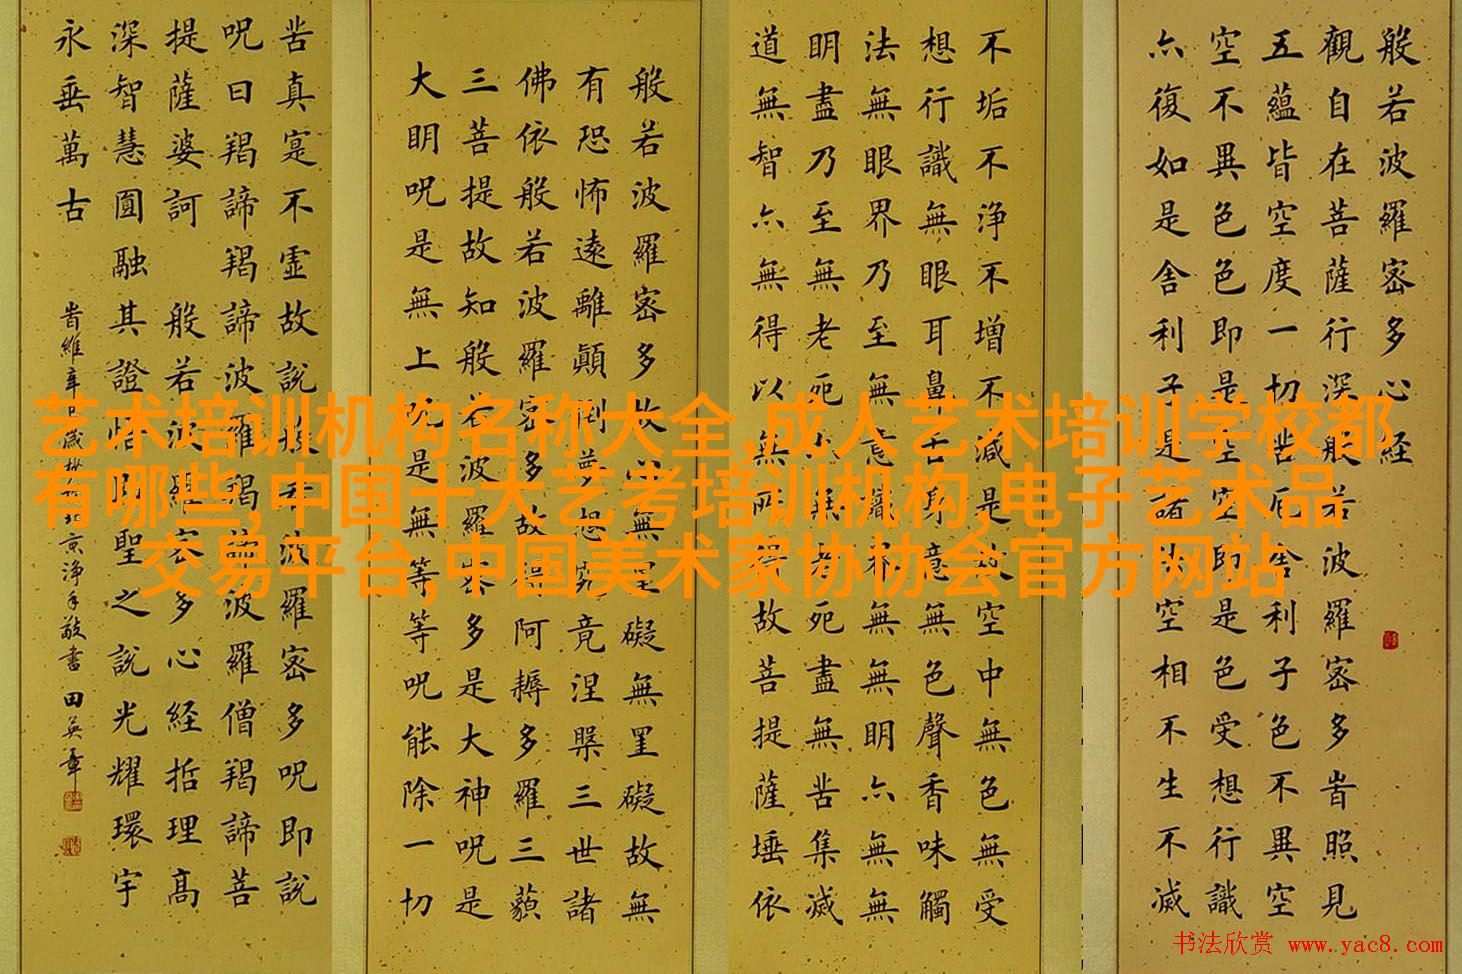 般若波羅密多心经
觀自在菩薩行深般若波羅密多旹照見
五蘊皆空度一切苦厄舍利子色不異空
空不異色色即是空空即是色受想行識
亦復如是舍利子是諸法空相不生不滅
不垢不浄不增不减是故空中無色無受
想行識無眼耳鼻舌身意無色聲香味觸
法無眼界乃至無意識界無無明亦無無
明盡乃至無老死亦無老死盡無苦集滅
道無智亦無得以無所得故菩提薩埵依
般若波羅密多故心無罣礙無罣礙故無
有恐怖遠離顛倒夢想究竟涅槃三世諸
佛依般若波羅密多故得阿耨多羅三藐
三菩提故知般若波羅密多是大神呪是
大明呪是無上呪是無等等呪能除一切
苦真寔不虚故説般若波羅密多呪即説
呪曰羯諦羯諦波羅羯諦波羅僧羯諦菩
提薩婆訶 般若波羅密多心経括理高
深智慧圓融其證悟聖之説光耀環宇
永垂萬古
旹維辛巳歲秋京浄手敬書 田英章
艺术培训机构名称大全,成人艺术培训学校都
有哪些,中国十大艺考培训机构,电子艺术品
交易平台,中国美术家协协会官方网站
书法欣赏 www.yac8.com